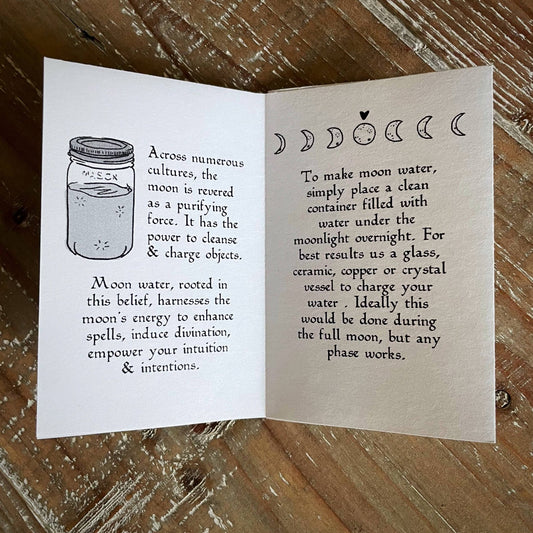 Across numerous
cultures, the
moon is revered
as a purifying
force. It has the
power to cleanse
& charge objects.
Moon water, rooted in
this belief, harnesses the
moon's energy to enhance
spells, induce divination,
empower your intuition
& intentions.
To make moon water,
simply place a clean
container filled with
water under the
moonlight overnight. For
best results us a glass,
ceramic, copper or crystal
vessel to charge your
water . Ideally this
would be done during
the full moon, but any
phase works.